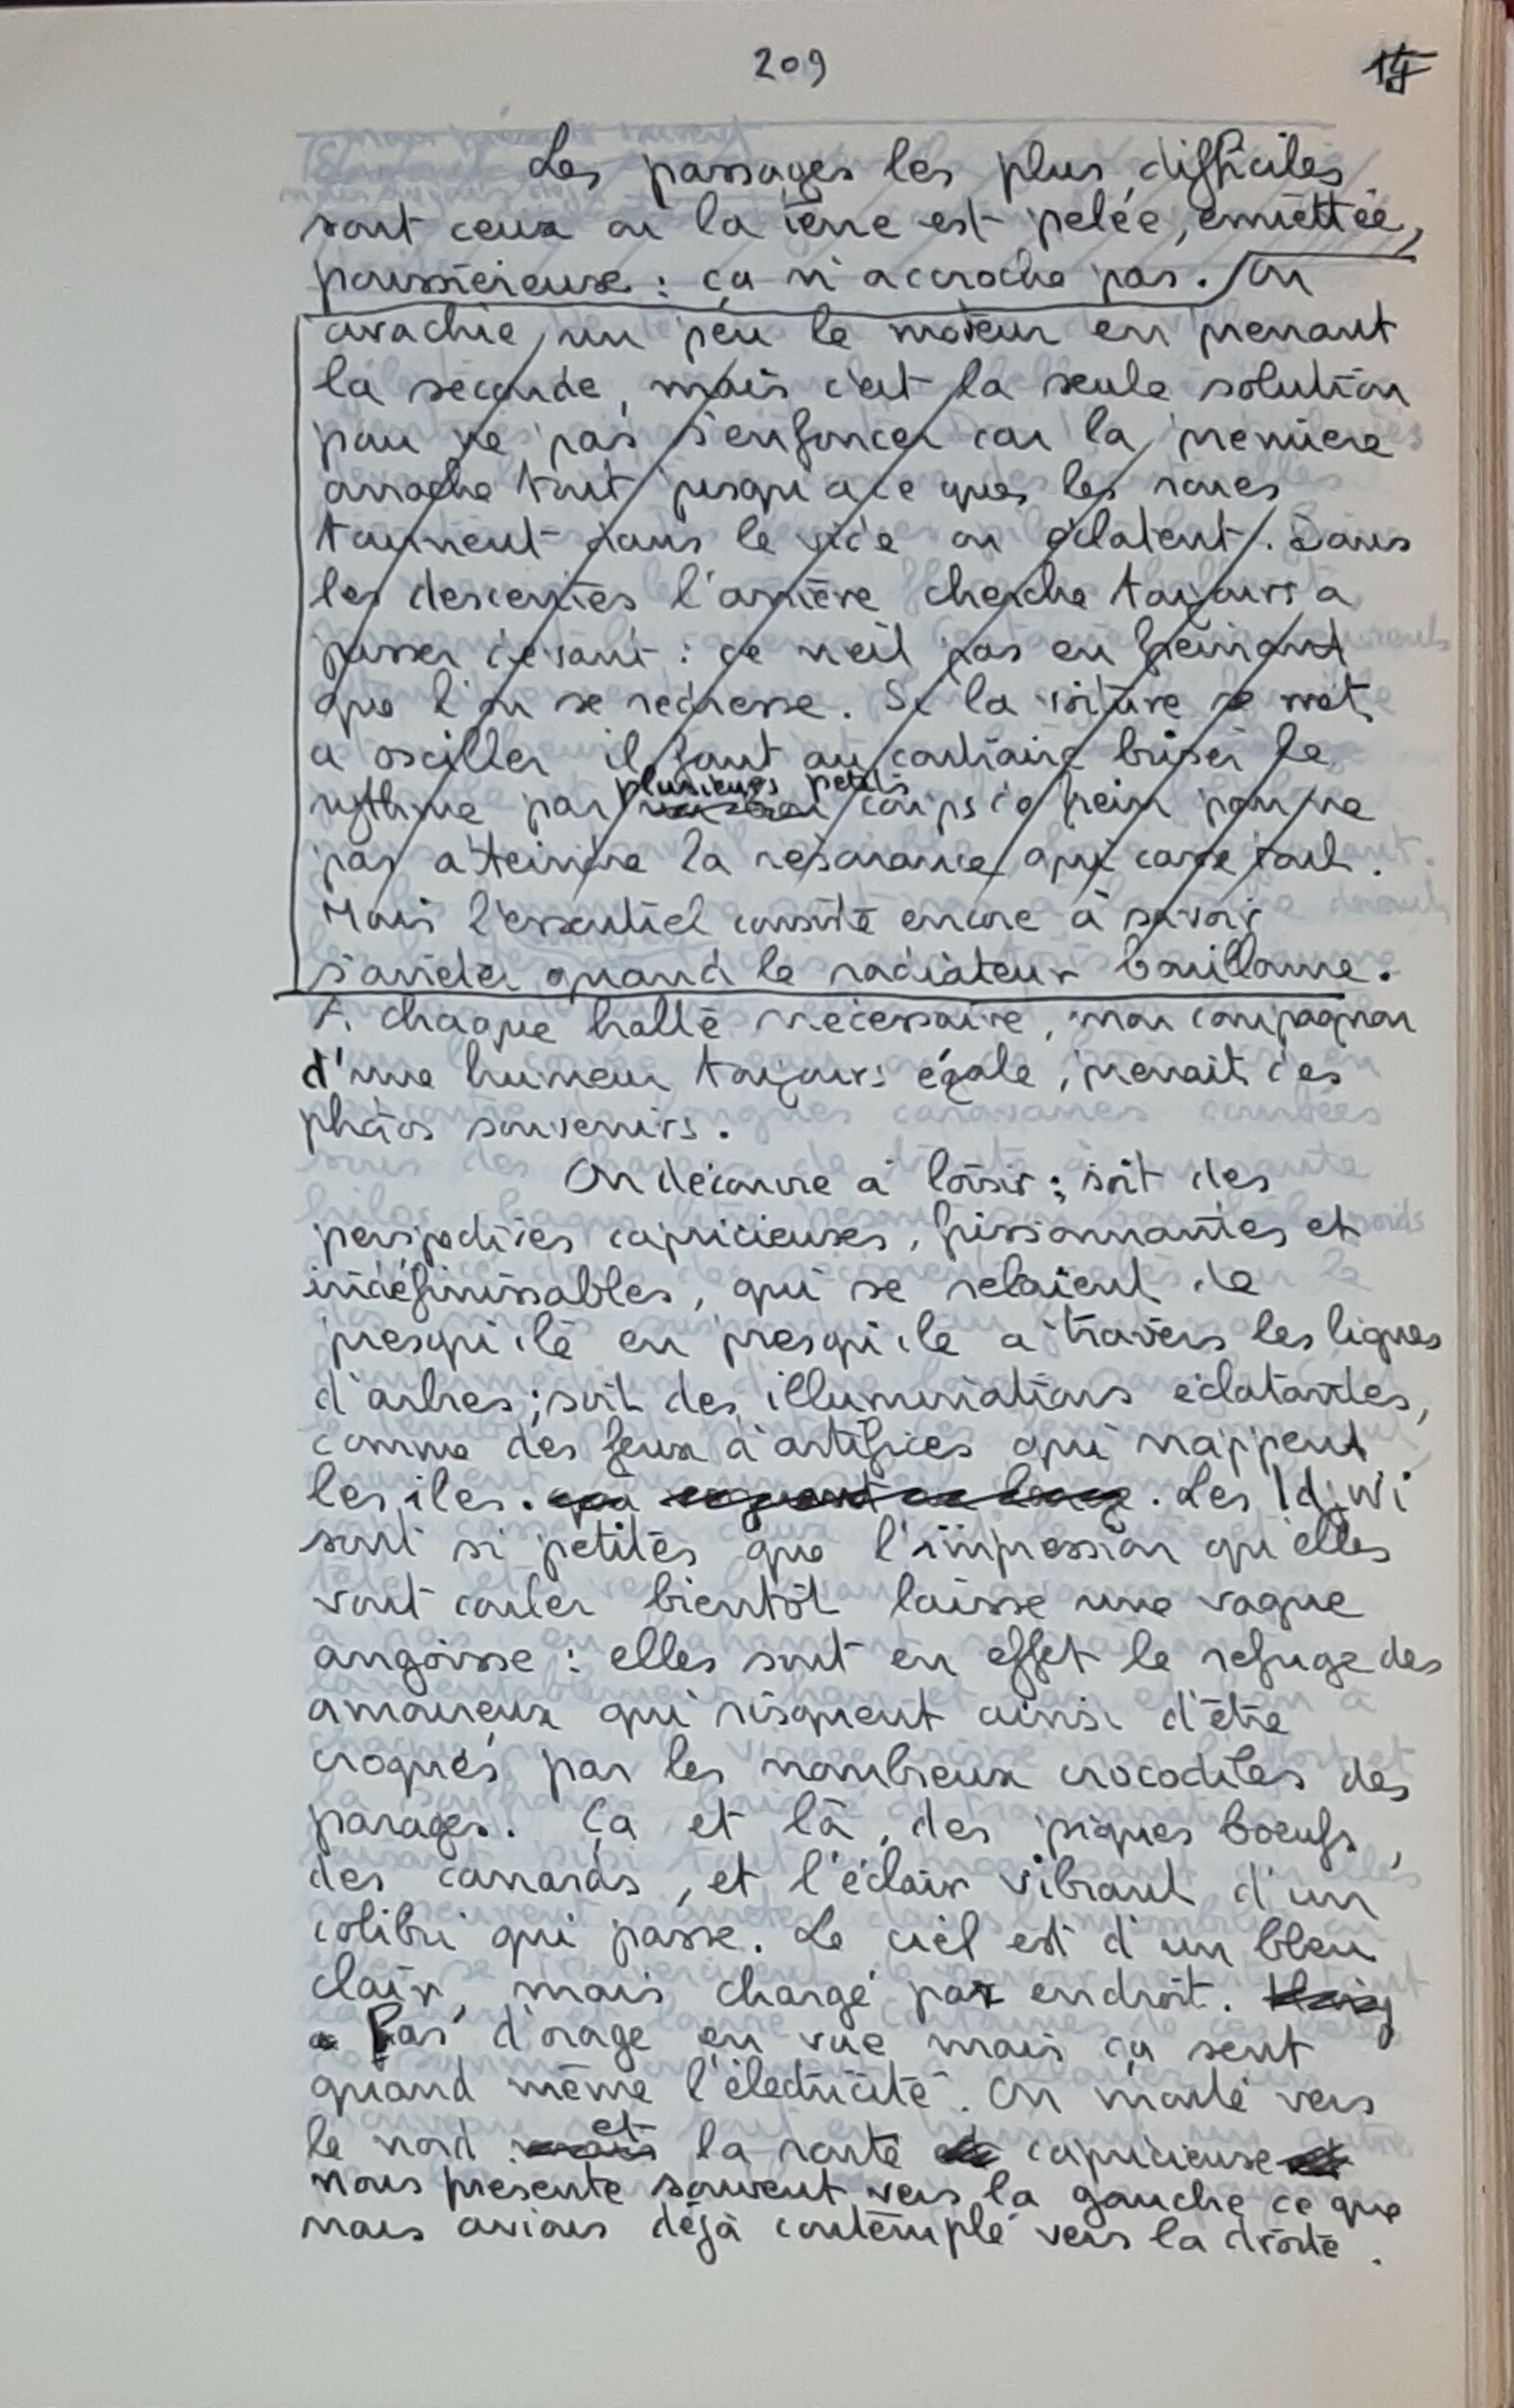 209
Les passages les plus difficiles
sont ceux où la terre est pelée, émiettée,
poussiéreuse : ça n'accroche pas. On
avachie un peu le moteur en prenant
la seconde, mais c'est la seule solution
pour ne pas s'enfoncer car la première
arrache tout jusqu'à ce que les roues
tournent dans le vide ou éclatent. Dans
les descentes l'arrière cherche toujours à
passer devant : ce n'est pas en freinant
que l'on se redresse. Si la voiture se met
à osciller il faut au contraire briser le
rythme par plusieurs petits coups de frein pour ne
pas atteindre la résonance qui casse tout.
Mais l'essentiel consiste encore à savoir
s'arrêter quand le radiateur bouillonne.
A chaque halte nécessaire, mon compagnon
d'une humeur toujours égale, prenait des
photos souvenirs.
On découvre à loisir ; soit des
perspectives capricieuses, frissonnantes et
indéfinissables, qui se relaient de
presqu'ile en presqu'ile à travers les lignes
d'arbres ; soit des illuminations éclatantes,
comme des feux d'artifices qui nappent
les iles. Les Idjwi
sont si petites que l'impression qu'elles
vont couler bientôt laisse une vague
angoisse : elles sont en effet le refuge des
amoureux qui risquent ainsi d'être
croqués par les nombreux crocodiles des
parages. Ça et là, des piques boeufs,
des canards, et l'éclair vibrant d'un
colibri qui passe. Le ciel est d'un bleu
clair, mais chargé par endroit.
Pas d'orage en vue mais ça sent
quand même l'électricité. On monte vers
le nord et la route capricieuse
nous présente souvent vers la gauche ce que
nous avions déjà contemplé vers la droite.